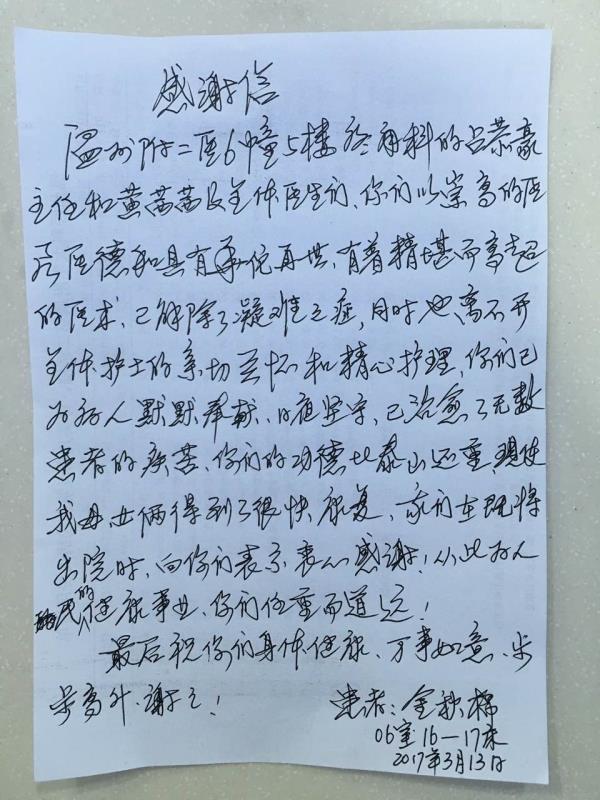 感谢信
温州附二医6幢5楼骨科的吕恭豪
主任和黄茜茜及全体医生们、你们以崇高的医
医德和具有华佗再世、有着精堪而高超
的医术、已解除了凝难之症,同时也离不开
全体护士的亲切关怀和精心护理,你们已
为病人默默奉献、日夜坚守、已治愈了无数
患者的疾苦、你们的功德比泰山还重,现使
我母女俩得到了很快康复、我们在即将
出院时、向你们表示衷心感谢!从此为人
民的健康事业、你们任重而道远!
最后祝你们身体健康、万事如意、步
步高升、谢谢!
患者:金秋棉
06室16—17床
2017年3月13日